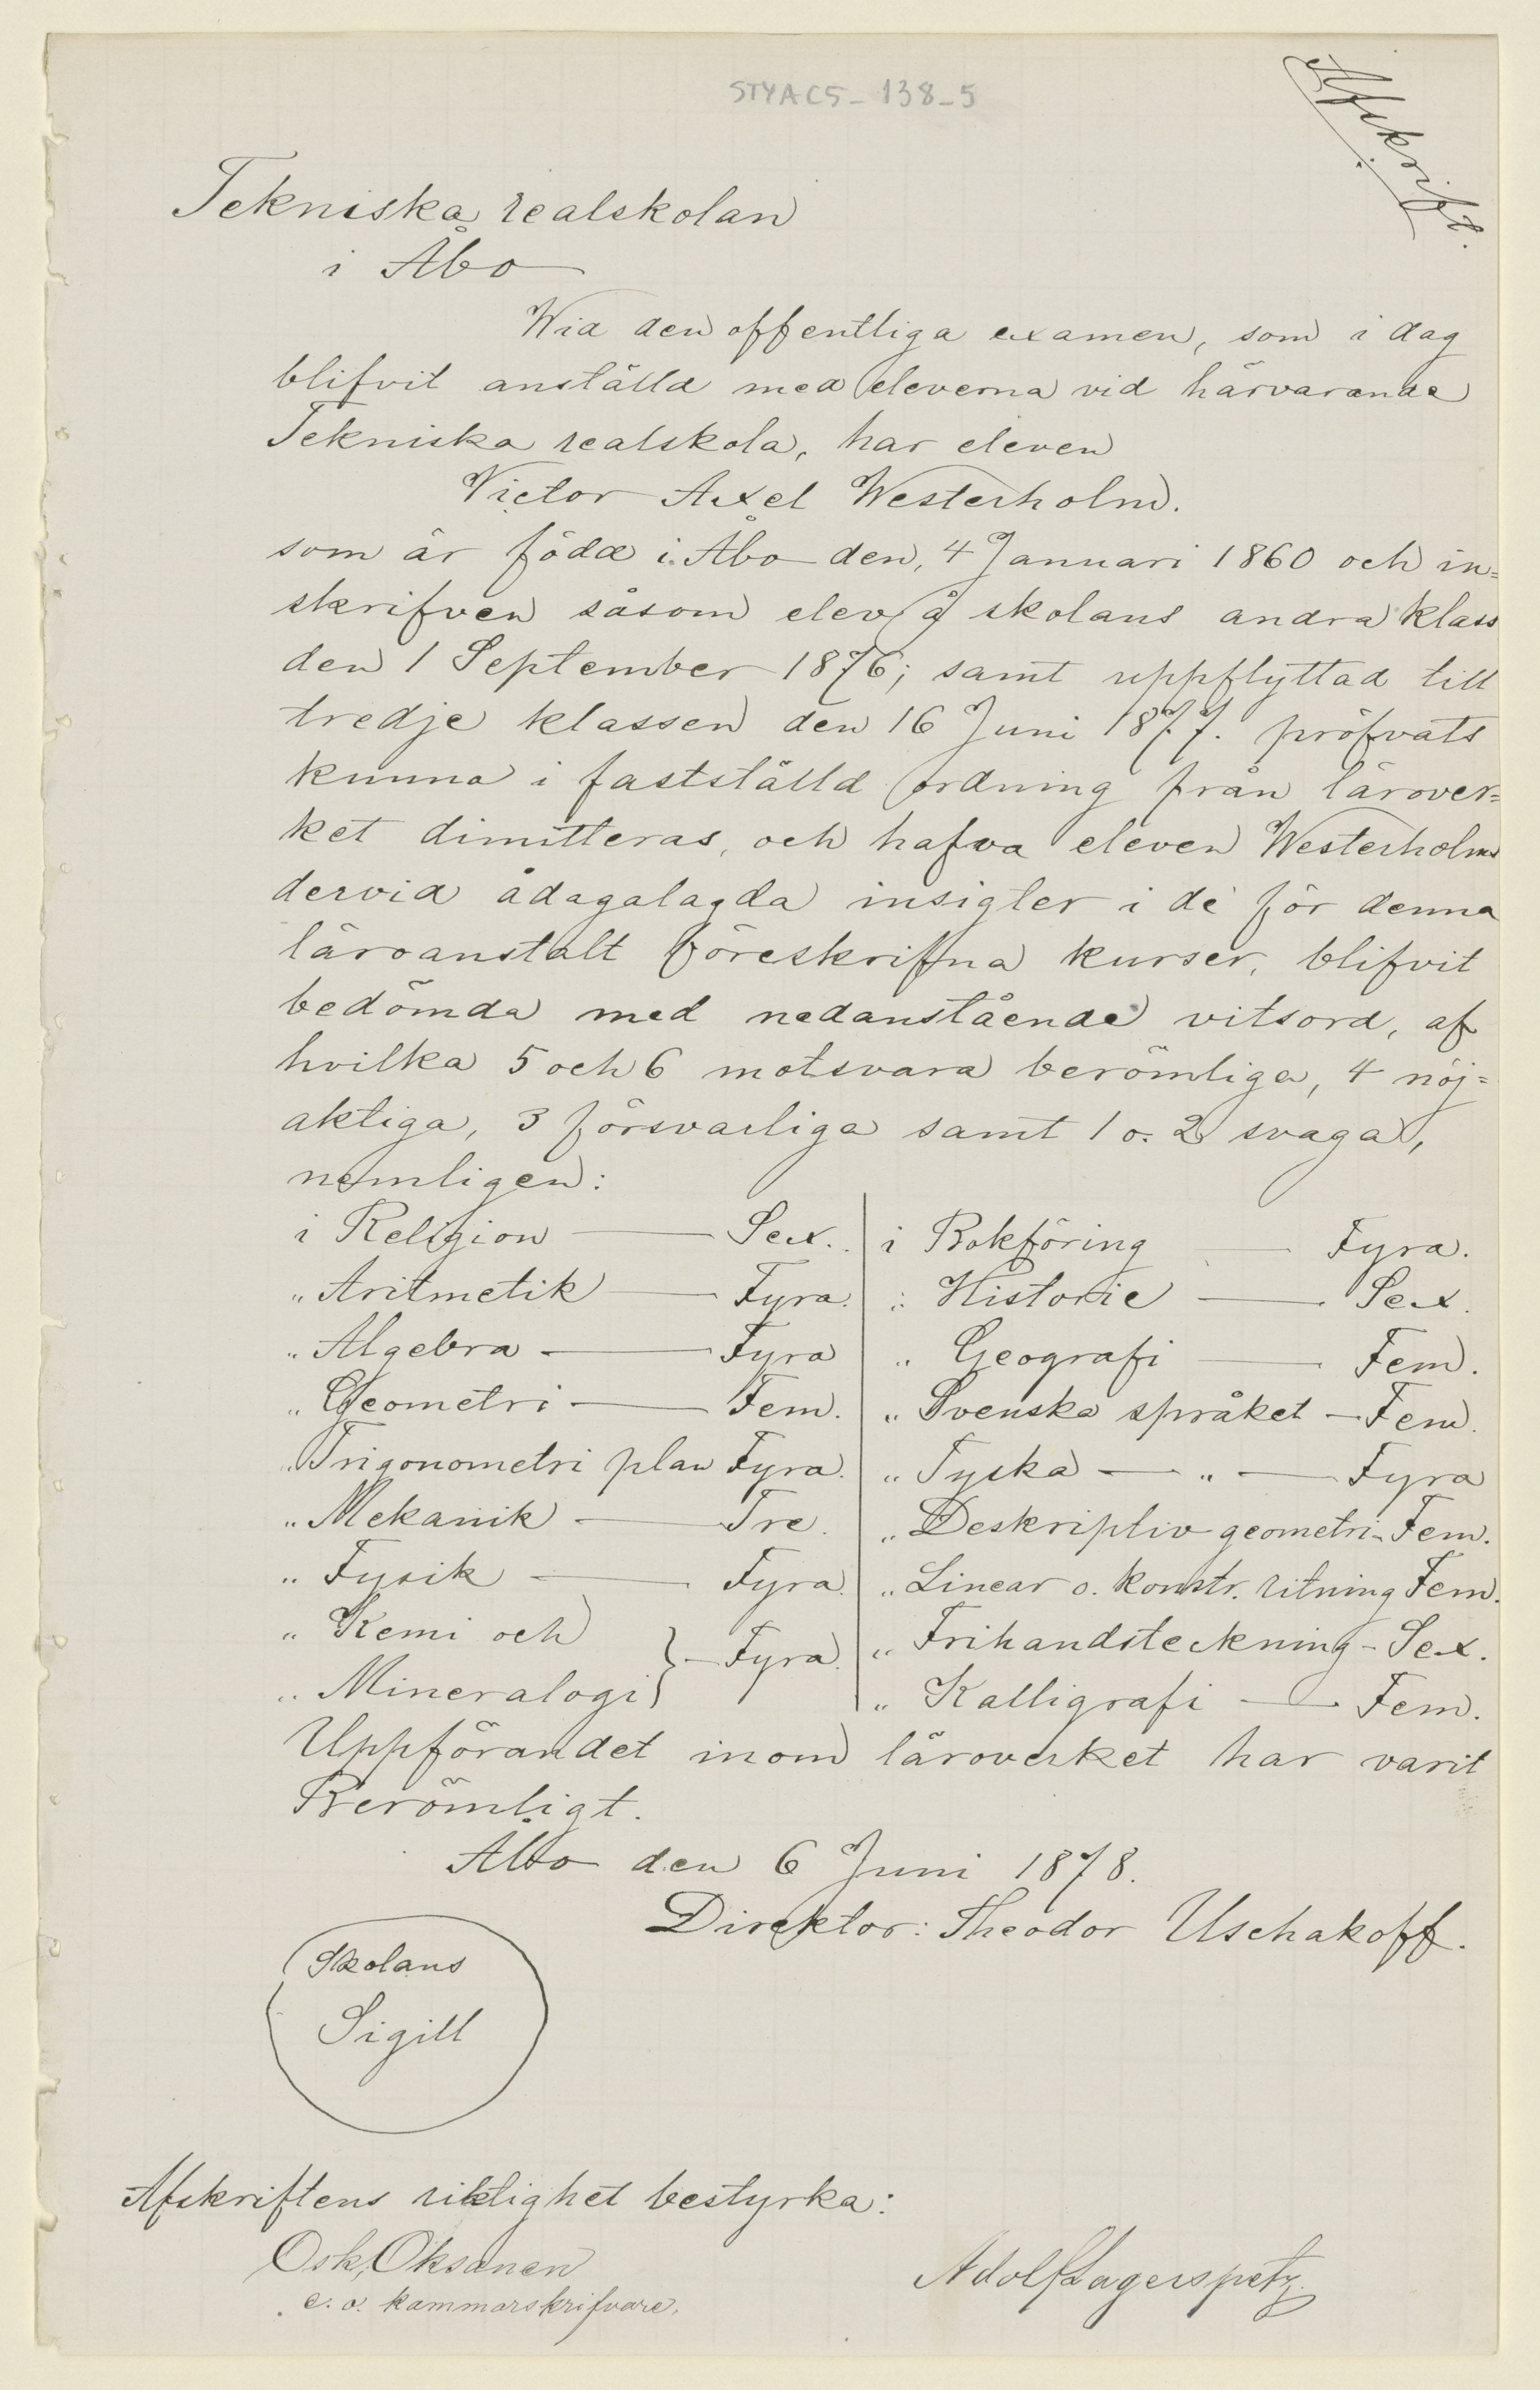 STYAC5_138_5
Afskrift.
Tekniska realskolan
i Åbo
Wid den offentliga examen, som i dag
blifvit anställd med eleverna vid härvarande
Tekniska realskola, har eleven
Victor Axel Westerholm.
som är född i Åbo den, 4 Januari 1860 och in=
skrifven såsom elev å skolans andra klass
den 1 September 1876; samt uppflyttad till
tredje klassen den 16 Juni 1877. pröfvats
kunna i fastställd ordning från lärover=
ket dimitteras, och hafva eleven Westerholms
dervid ådagalagda insigter i de för denna
läroanstalt föreskrifna kurser, blifvit
bedömda med nedanstående vitsord, af
hvilka 5 och 6 motsvara berömliga, 4 nöj=
aktiga, 3 försvarliga samt 1 o. 2 svaga,
nemligen:
i Religion — Sex.
„ Aritmetik — Fyra.
„ Algebra — Fyra
„ Geometri — Fem.
„ Trigonometri plan Fyra.
„ Mekanik — Tre.
„ Fysik — Fyra.
„ Kemi och
„ Mineralogi } — Fyra.
i Bokföring — Fyra.
„ Historie — Sex.
„ Geografi — Fem.
„ Svenska språket — Fem.
„ Tyska — „ — Fyra
„ Deskriptiv geometri - Fem.
„ Linear o. konstr. ritning Fem.
„ Frihandsteckning - Sex.
„ Kalligrafi — Fem.
Uppförandet inom läroverket har varit
Berömligt.
Åbo den 6 Juni 1878.
Direktor: Theodor Uschakoff.
Skolans
Sigill
Afskriftens riktighet bestyrka:
Osk. Oksanen
e. o. kammarskrifvare.
Adolf Lagerspetz.